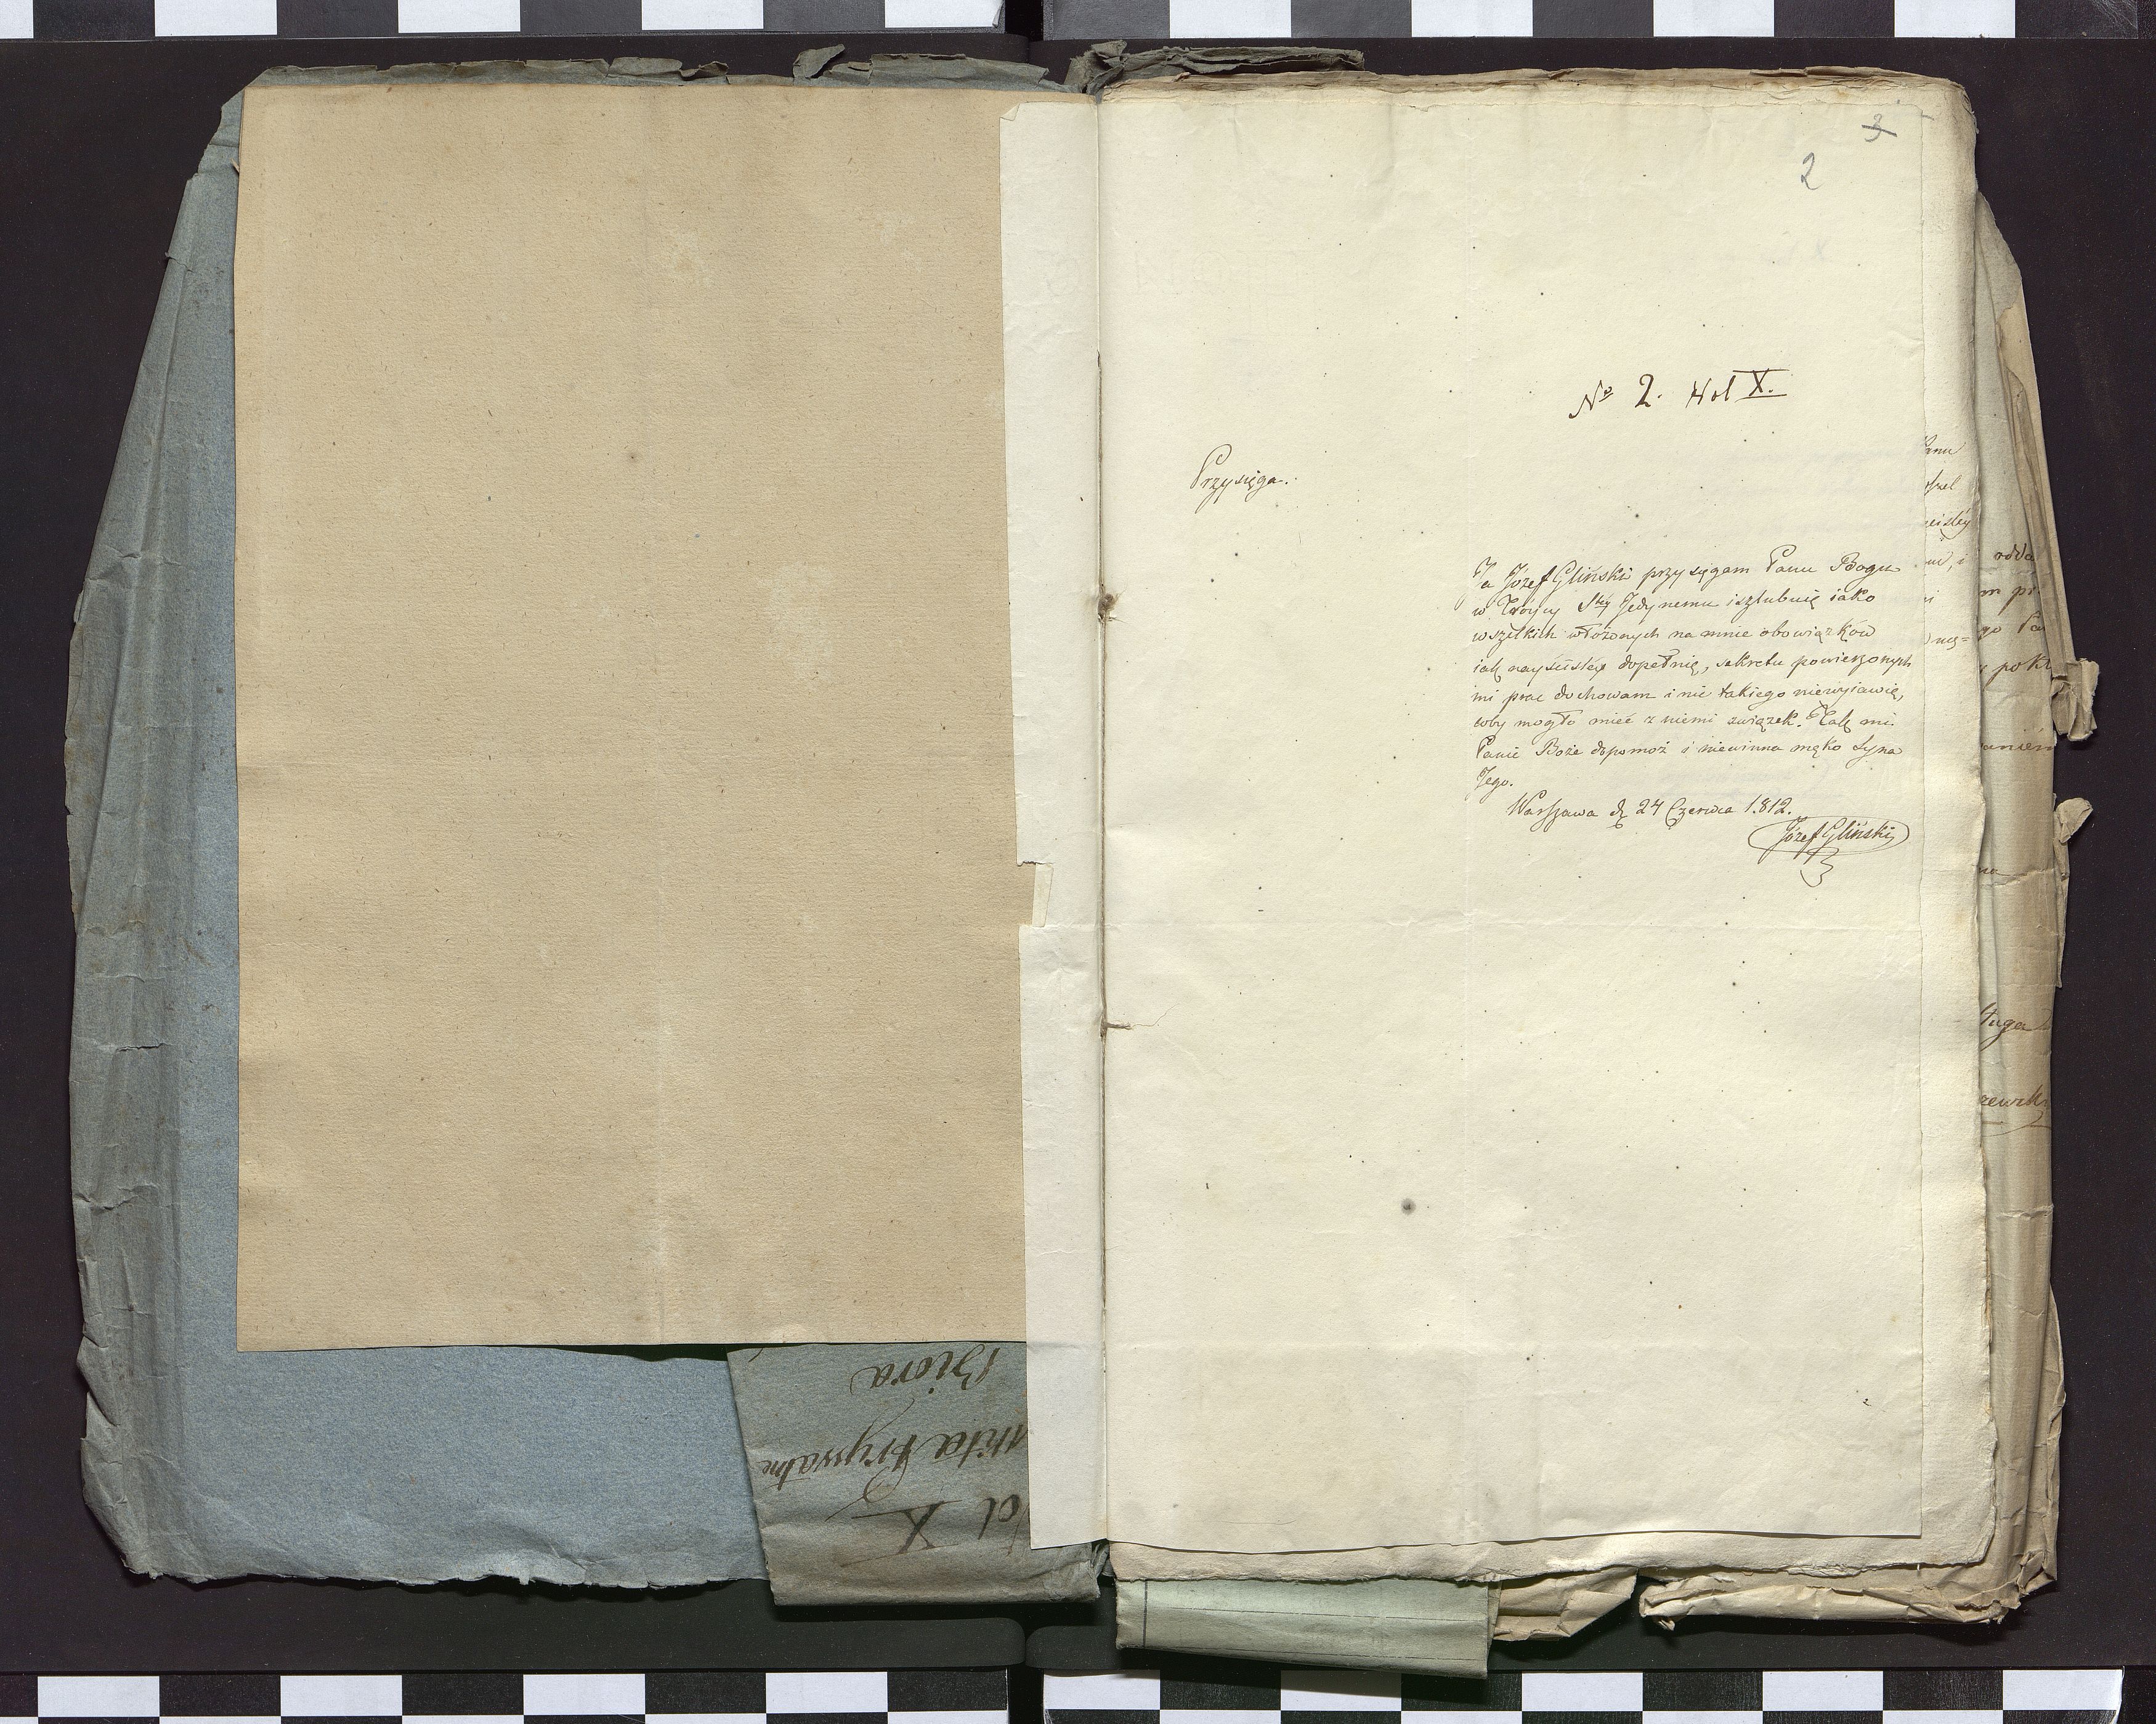 3
2
No 2. Vol X.
Przysięga.
Ja Józef Gliński przysięgam Panu Bogu
w Tróycy Stéy Jedynemu iszlubuię iako
wszelkich włożonych na mnie obowiązków
iak nayściśléy dopełnię, sekretu powierzonych
mi prac dochowam i nic takiego niewyiawię,
coby mogło mieć z niemi związek. Tak mi
Panie Boże dopomóż i niewinna męko Syna
Jego.
Warszawa d. 24 Czerwca 1.812.
Józef Gliński
Vol X
Prywatne
Biora